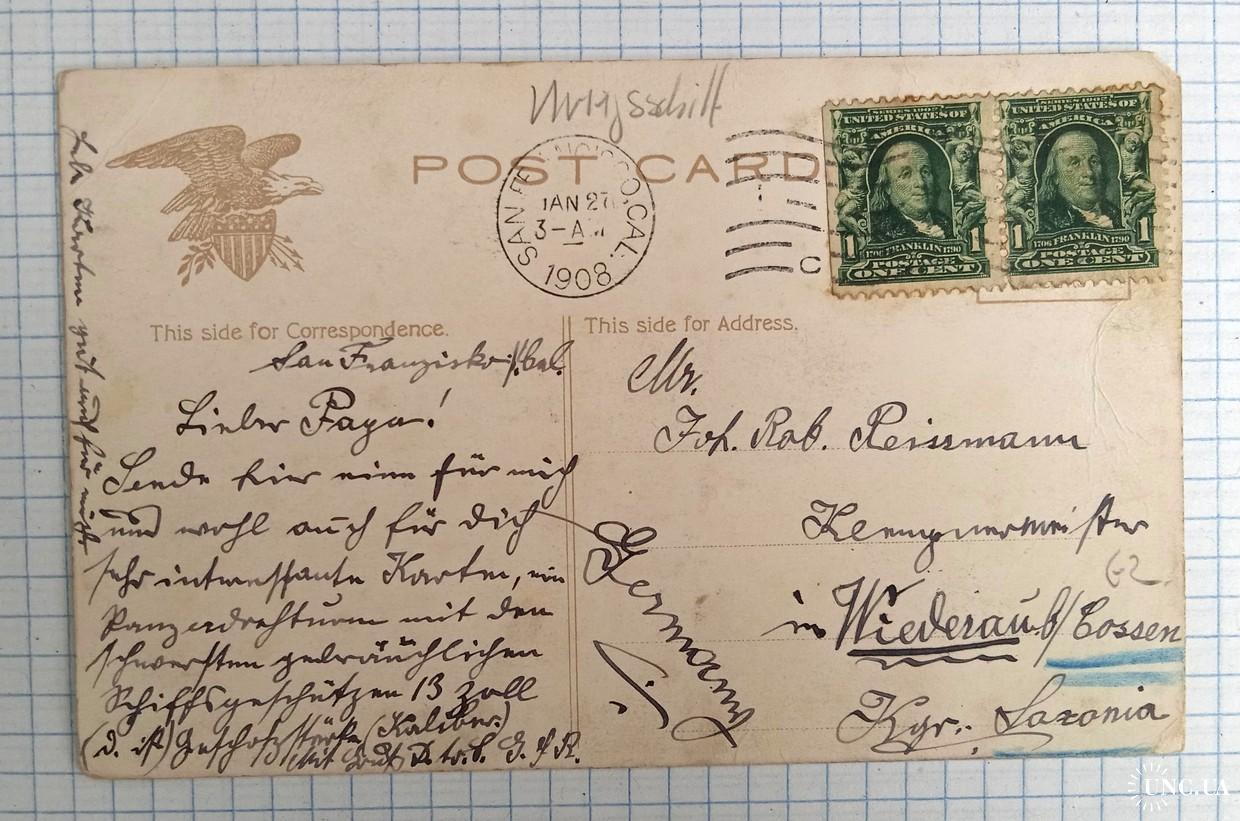 POST CARD
SAN FRANCISCO, CAL.
JAN 27
3-AM
1908
SERIES 1902
UNITED STATES OF
AMERICA
1 1
1706 FRANKLIN 1790
POSTAGE
ONE CENT
SERIES 1902
UNITED STATES OF
AMERICA
1 1
1706 FRANKLIN 1790
POSTAGE
ONE CENT
This side for Correspondence.
San Franzisko Cal.
Lieber Papa!
Sende hier eine für mich
und wohl auch für dich
sehr interessante Karte, ein
Panzerdrehturm mit den
schwersten gebräuchlichen
Schiffsgeschützen 13 Zoll
(d. ist) Geschoßstärke (Kaliber.)
Mit Gruß D. tr. S.
Karten gut auf für mich
This side for Address.
Mr.
Joh. Rob. Reissmann
Klempnermeister
in Wiederau b/ Cossen
Kgr. Saxonia
Germany
62
UNC.UA